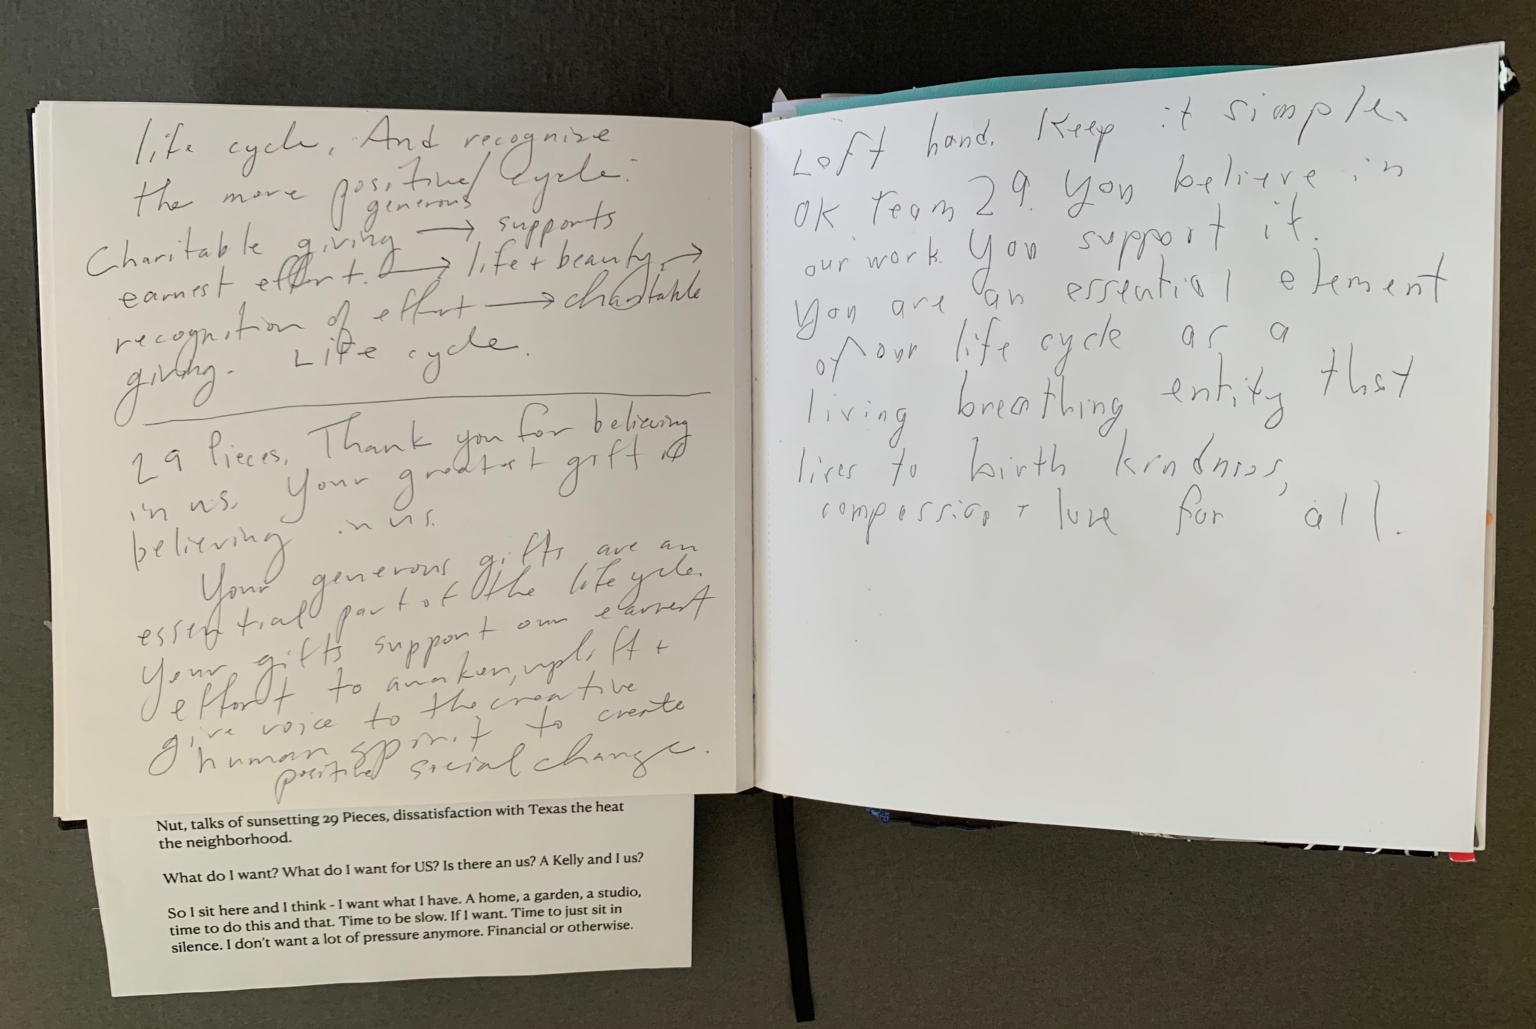 life cycle. And recognize
the more positive/ cycle:
generous
Charitable giving → supports
earnest effort. → life + beauty →
recognition of effort → charitable
giving. Life cycle.
29 Pieces, Thank you for believing
in us. Your greatest gift is
believing in us.
Your generous gifts are an
essential part of the life cycle.
Your gifts support our earnest
effort to awaken, uplift +
give voice to the creative
human spirit to create
positive social change.
Left hand. Keep it simple.
OK Team 29. You believe in
our work. You support it.
You are an essential element
of our life cycle as a
living breathing entity that
lives to birth kindness,
compassion + love for all.
Nut, talks of sunsetting 29 Pieces, dissatisfaction with Texas the heat
the neighborhood.
What do I want? What do I want for US? Is there an us? A Kelly and I us?
So I sit here and I think - I want what I have. A home, a garden, a studio,
time to do this and that. Time to be slow. If I want. Time to just sit in
silence. I don't want a lot of pressure anymore. Financial or otherwise.